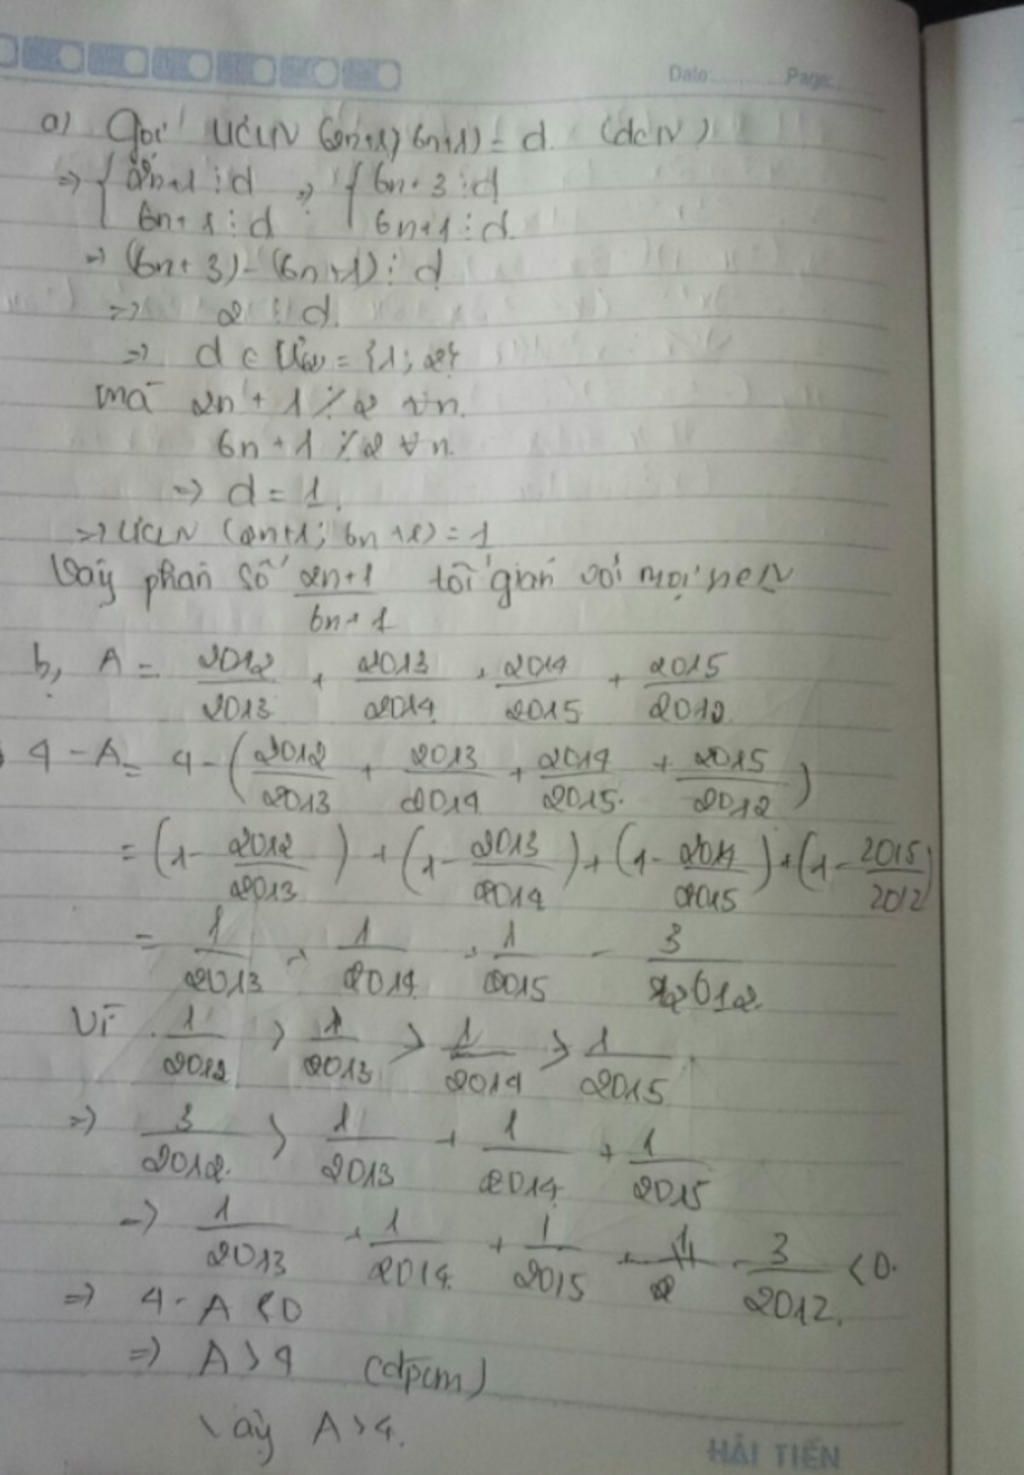 Date: Page:
a) Gọi ƯCLN (2n+1, 6n+1) = d (d∈N)
=> { 2n+1 ⋮ d => { 6n+3 ⋮ d
6n+1 ⋮ d 6n+1 ⋮ d
=> (6n+3) - (6n+1) ⋮ d
=> 2 ⋮ d.
=> d ∈ Ư(2) = {1; 2}
mà 2n+1 ⋮̸ 2 ∀n.
6n+1 ⋮̸ 2 ∀n.
=> d = 1.
=> ƯCLN (2n+1; 6n+1) = 1
Vậy phân số (2n+1)/(6n+1) tối giản với mọi n∈N
b, A = 2012/2013 + 2013/2014 + 2014/2015 + 2015/2012
4 - A = 4 - (2012/2013 + 2013/2014 + 2014/2015 + 2015/2012)
= (1 - 2012/2013) + (1 - 2013/2014) + (1 - 2014/2015) + (1 - 2015/2012)
= 1/2013 + 1/2014 + 1/2015 - 3/2012
Vì 1/2012 > 1/2013 > 1/2014 > 1/2015.
=> 3/2012 > 1/2013 + 1/2014 + 1/2015
=> 1/2013 + 1/2014 + 1/2015 - 3/2012 < 0.
=> 4 - A < 0
=> A > 4 (đpcm)
Vậy A > 4.
HẢI TIẾN